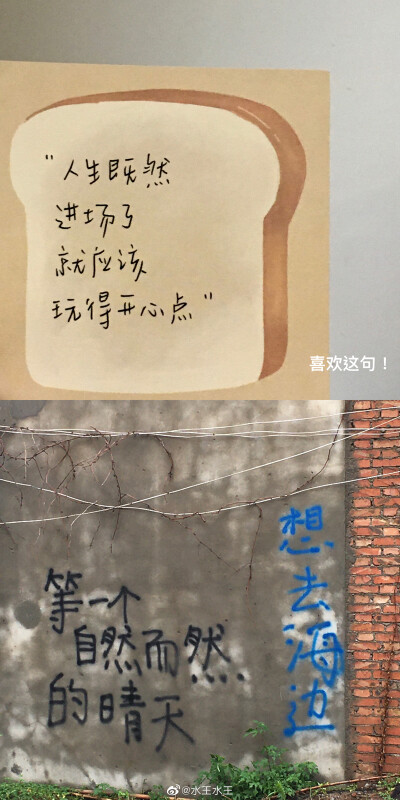 “人生既然
进场了
就应该
玩得开心点”
喜欢这句！
想去海边
等一个
自然而然
的晴天
@水王水王